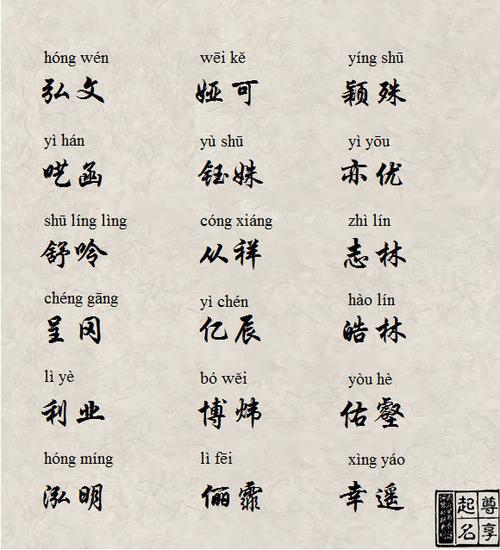 hóng wén wēi kě yíng shū
弘文 娅可 颖殊
yì hán yù shū yì yōu
呓函 钰姝 亦优
shū líng lìng cóng xiáng zhì lín
舒呤 从祥 志林
chéng gāng yì chén hào lín
呈冈 亿辰 皓林
lì yè bó wěi yòu hè
利业 博炜 佑壑
hóng míng lì fēi xìng yáo
泓明 俪霏 幸遥
尊享
起名